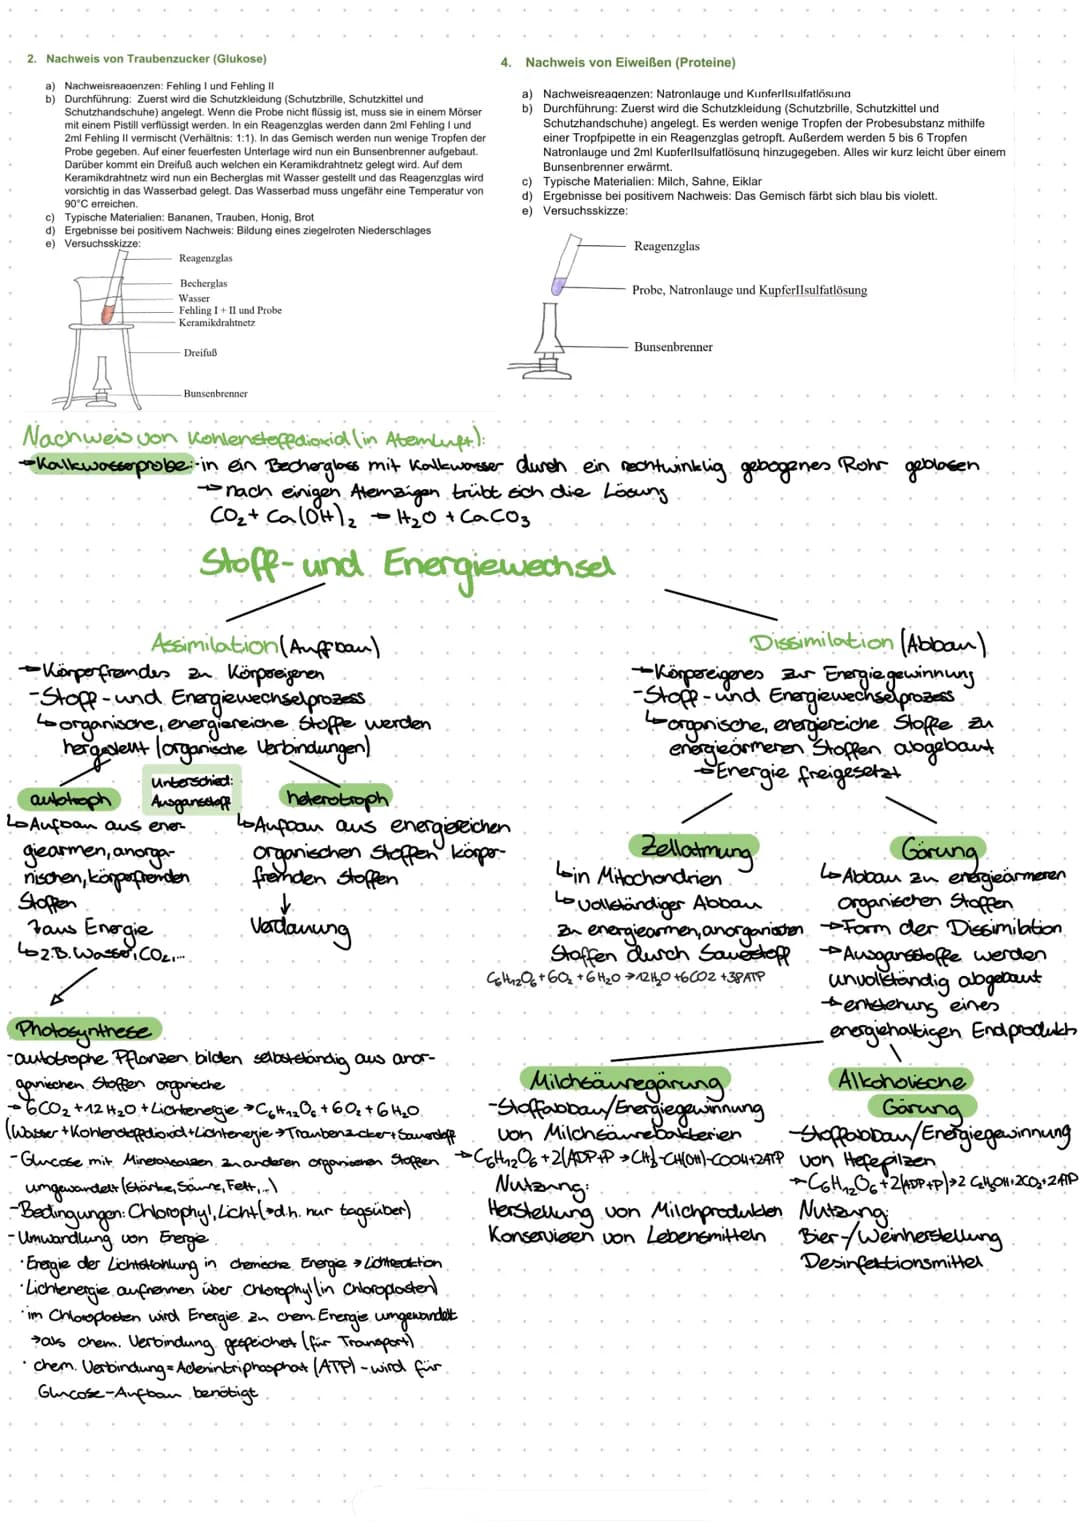 2. Nachweis von Traubenzucker (Glukose)
a) Nachweisreagenzen: Fehling I und Fehling II
b) Durchführung: Zuerst wird die Schutzkleidung (Schutzbrille, Schutzkittel und
Schutzhandschuhe) angelegt. Wenn die Probe nicht flüssig ist, muss sie in einem Mörser
mit einem Pistill verflüssigt werden. In ein Reagenzglas werden dann 2ml Fehling I und
2ml Fehling II vermischt (Verhältnis: 1:1). In das Gemisch werden nun wenige Tropfen der
Probe gegeben. Auf einer feuerfesten Unterlage wird nun ein Bunsenbrenner aufgebaut.
Darüber kommt ein Dreifuß auch welchen ein Keramikdrahtnetz gelegt wird. Auf dem
Keramikdrahtnetz wird nun ein Becherglas mit Wasser gestellt und das Reagenzglas wird
vorsichtig in das Wasserbad gelegt. Das Wasserbad muss ungefähr eine Temperatur von
90°C erreichen.
c) Typische Materialien: Bananen, Trauben, Honig, Brot
d) Ergebnisse bei positivem Nachweis: Bildung eines ziegelroten Niederschlages
e) Versuchsskizze:
Reagenzglas
Becherglas
Wasser
Fehling I + II und Probe
Keramikdrahtnetz
Dreifuß
Bunsenbrenner
4. Nachweis von Eiweißen (Proteine)
a) Nachweisreagenzen: Natronlauge und KupferIIsulfatlösung
b) Durchführung: Zuerst wird die Schutzkleidung (Schutzbrille, Schutzkittel und
Schutzhandschuhe) angelegt. Es werden wenige Tropfen der Probesubstanz mithilfe
einer Tropfpipette in ein Reagenzglas getropft. Außerdem werden 5 bis 6 Tropfen
Natronlauge und 2ml KupferIIsulfatlösung hinzugegeben. Alles wir kurz leicht über einem
Bunsenbrenner erwärmt.
c) Typische Materialien: Milch, Sahne, Eiklar
d) Ergebnisse bei positivem Nachweis: Das Gemisch färbt sich blau bis violett.
e) Versuchsskizze:
Reagenzglas
Probe, Natronlauge und KupferIIsulfatlösung
Bunsenbrenner
Nachweis von Kohlenstoffdioxid (in Atemluft):
→Kalkwasserprobe: -in ein Becherglas mit Kalkwasser durch ein rechtwinklig gebogenes Rohr geblasen
→nach einigen Atemzügen trübt sich die Lösung
CO₂ + Ca(OH)₂ → H₂O + CaCO₃
Stoff- und Energiewechsel
Assimilation (Aufbau)
→Körperfremdes zu Körpereigenen
-Stoff- und Energiewechselprozess
↳organische, energiereiche Stoffe werden
hergestellt (organische Verbindungen)
Unterschied:
Ausgansstoff
autotroph
↳Aufbau aus ener-
giearmen, anorga-
nischen, körperfremden
Stoffen
↑aus Energie
↳z.B. Wasser, CO₂,...
heterotroph
↳Aufbau aus energiereichen
organischen Stoffen körper-
fremden Stoffen
↓
Verdauung
Photosynthese
-autotrophe Pflanzen bilden selbstständig aus anor-
ganischen Stoffen organische
→6CO₂ + 12H₂O + Lichtenegie → C₆H₁₂O₆ + 6O₂ + 6H₂O
(Wasser + Kohlenstoffdioxid + Lichtenergie → Traubenzucker + Sauerstoff
-Glucose mit Mineralsalzen zu anderen organischen Stoffen
umgewandelt (Stärke, Säure, Fett,...)
-Bedingungen: Chlorophyl, Licht (→d.h. nur tagsüber)
-Umwandlung von Energie
·Energie der Lichtstrahlung in chemische Energie → Lichtreaktion
·Lichtenergie aufnehmen über Chlorophyl (in Chloroplasten)
·im Chloroplasten wird Energie zu chem. Energie umgewandelt
→als chem. Verbindung gespeichert (für Transport)
·chem. Verbindung = Adenintriphosphat (ATP) - wird für
Glucose-Aufbau benötigt
Dissimilation (Abbau)
→Körpereigenes zur Energiegewinnung
-Stoff- und Energiewechselprozess
↳organische, energiereiche Stoffe zu
energieärmeren Stoffen abgebaut
→Energie freigesetzt
Zellatmung
↳in Mitochondrien
↳vollständiger Abbau
zu energiearmen, anorganischen
Stoffen durch Sauerstoff
C₆H₁₂O₆ + 6O₂ + 6H₂O → 12H₂O + 6CO2 + 38ATP
Gärung
↳Abbau zu energieärmeren
organischen Stoffen
→Form der Dissimilation
→Ausgansstoffe werden
unvollständig abgebaut
→entstehung eines
energiehaltigen Endprodukts
Milchsäuregärung
-Stoffabbau/Energiegewinnung
von Milchsäurebakterien
→C₆H₁₂O₆ + 2(ADP+P → CH₃-CH(OH)-COOH+2ATP
Nutzung:
Herstellung von Milchprodukten
Konservieren von Lebensmitteln
Alkoholische
Gärung
-Stoffabbau/Energiegewinnung
von Hefepilzen
→C₆H₁₂O₆ + 2(ADP+P) → 2 C₂H₅OH+2CO₂+2ATP
Nutzung:
Bier-/Weinherstellung
Desinfektionsmittel